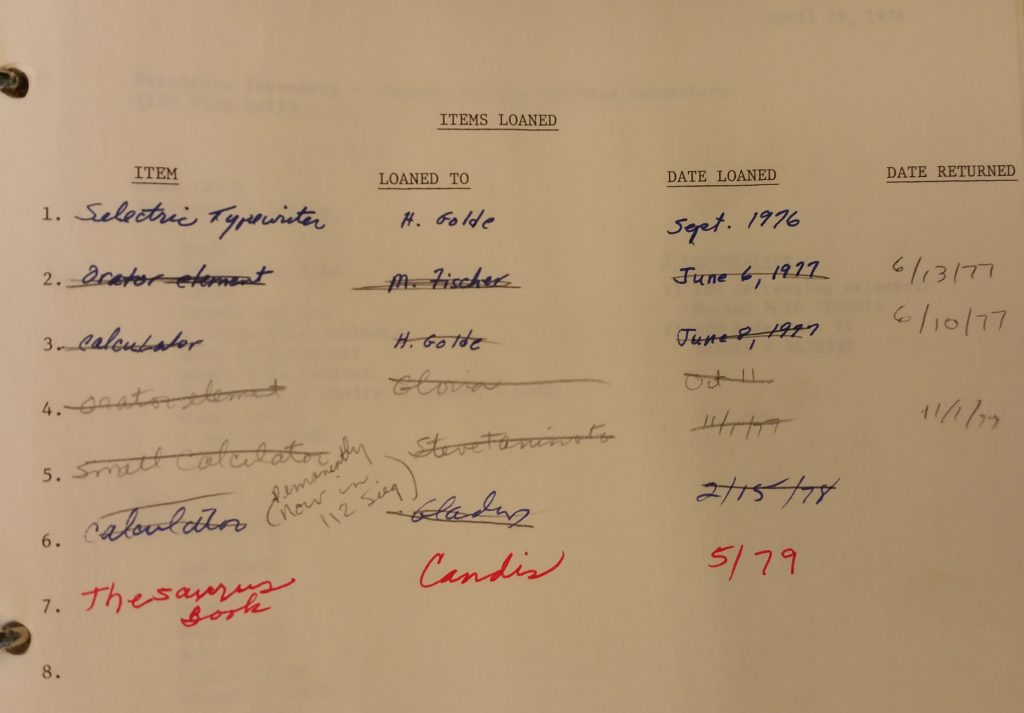 April 29, 1976
ITEMS LOANED
ITEM LOANED TO DATE LOANED DATE RETURNED
1. Selectric Typewriter H. Golde Sept. 1976
2. Orator element M. Fischer June 6, 1977 6/13/77
3. Calculator H. Golde June 8, 1977 6/10/77
4. Orator element Gloria Oct 11
5. Small Calculator Steve Tanimoto 11/1/77 11/1/77
(permanently
now in
112 Sieg)
6. Calculator Gladys 2/15/78
7. Thesaurus Candis 5/79
Book
8.